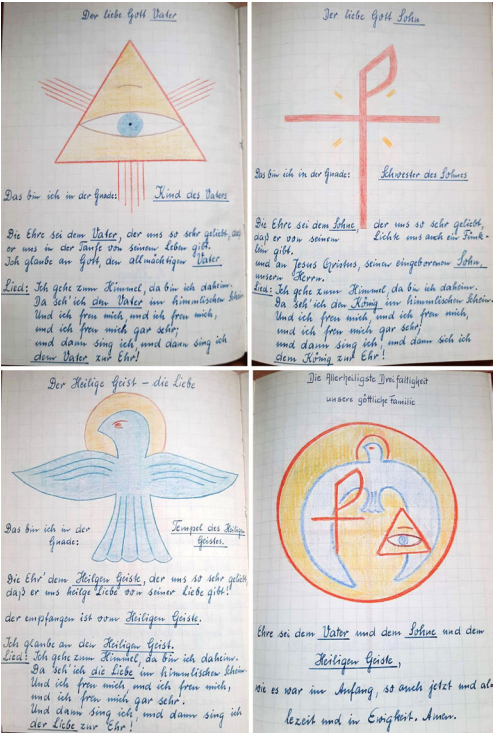 Der liebe Gott Vater
Das bin ich in der Gnade: Kind des Vaters
Die Ehre sei dem Vater, der uns so sehr geliebt, daß
er uns in der Taufe von seinem Leben gibt.
Ich glaube an Gott, den allmächtigen Vater
Lied: Ich gehe zum Himmel, da bin ich daheim.
Da seh' ich den Vater im himmlischen Schein.
Und ich freu mich, und ich freu mich,
und ich freu mich gar sehr;
und dann sing ich, und dann sing ich
dem Vater zur Ehr!
Der liebe Gott Sohn
Das bin ich in der Gnade: Schwester des Sohnes
Die Ehre sei dem Sohne, der uns so sehr geliebt,
daß er von seinem Lichte uns auch ein Fünk-
lein gibt.
und an Jesus Christus, seinen eingeborenen Sohn,
unsern Herrn.
Lied: Ich gehe zum Himmel, da bin ich daheim.
Da seh' ich den König im himmlischen Schein.
Und ich freu mich, und ich freu mich,
und ich freu mich gar sehr;
und dann sing ich, und dann sich ich
dem König zur Ehr!
Der Heilige Geist – die Liebe
Das bin ich in der
Gnade: Tempel des Heiligen
Geistes.
Die Ehr' dem Heilgen Geiste, der uns so sehr geliebt,
daß er uns heilge Liebe von seiner Liebe gibt!
der empfangen ist vom Heiligen Geiste.
Ich glaube an den Heiligen Geist.
Lied: Ich gehe zum Himmel, da bin ich daheim.
Da seh' ich die Liebe im himmlischen Schein.
Und ich freu mich, und ich freu mich,
und ich freu mich gar sehr.
Und dann sing ich, und dann sing ich
der Liebe zur Ehr!
Die Allerheiligste Dreifaltigkeit
unsere göttliche Familie
Ehre sei dem Vater und dem Sohne und dem
Heiligen Geiste,
wie es war im Anfang, so auch jetzt und al-
lezeit und in Ewigkeit. Amen.